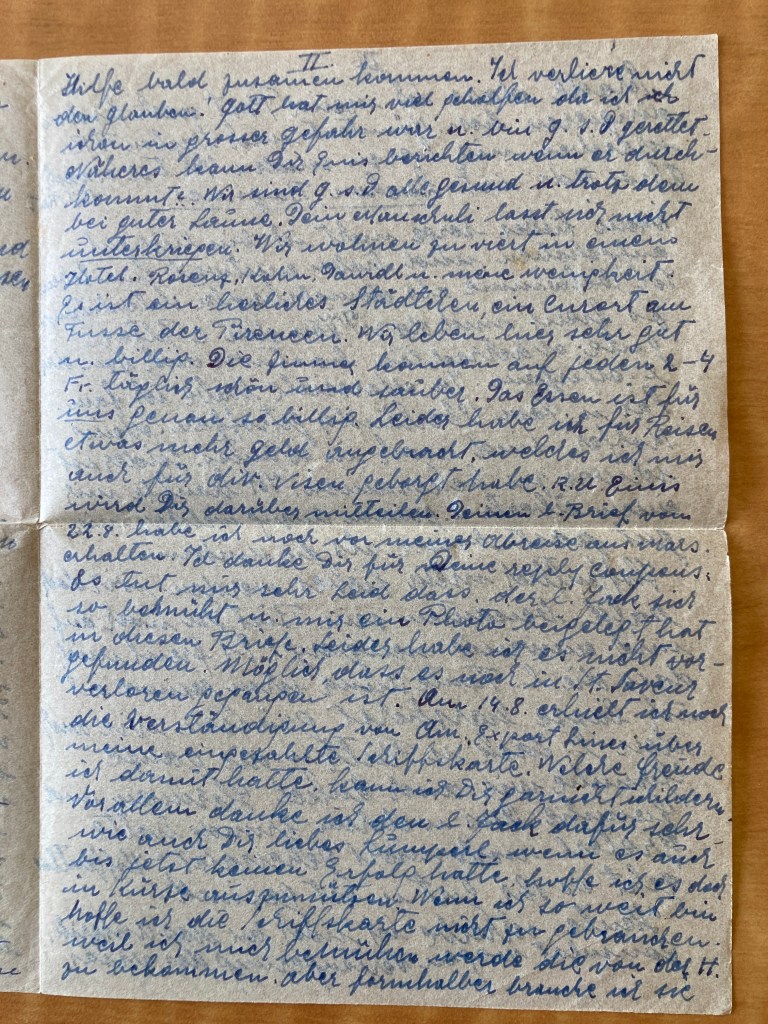 II.
Hilfe bald zusamen kommen. Ich verliere nicht
den glauben! Gott hat mir viel geholfen da ich
schon in grosser gefahr war u. bin g. s. D gerettet.
Näheres kann Dir Emis berichten wenn er durch-
kommt. Wir sind g. s. D. alle gesund u. trotz dem
bei guter Laune. Dein lasst sich nicht
unterkriegen. Wir wohnen zu viert in einem
Hotel. Rosenz, Kohn, Dawidl u. meine wenigkeit.
Es ist ein herliches Städtchen, ein Curort am
Fusse der Pireneen. Wir leben hier sehr gut
u. billig. Die Zimmer kommen auf jeden 2-4
Fr. täglich schön und sauber. Das Essen ist für
uns genau so billig. Leider habe ich für Reisen
etwas mehr geld angebracht, welches ich mir
auch für div. Visen geborgt habe. R. u Emis
wird Dir darüber mitteilen. Deinen l. Brief vom
22.8. habe ich noch vor meiner Abreise aus Mars.
erhalten. Ich danke Dir für Deine reply coupons.
Es tut mir sehr Leid dass der l. Jack sich
so bemüht u. mir ein Photo beigelegt hat
in diesen Briefe. Leider habe ich es nicht vor-
gefunden. Möglich dass es noch in St. Saveur
verloren gegangen ist. Am 14.8. erhielt ich noch
die Verständigung von Am. Export Lines über
meine eingezahlte Schiffskarte. Welche freude
ich damit hatte, kann ich Dir garnicht schildern.
Vor allem danke ich den l. Jack dafür sehr
wie auch Dir liebes Lumperl wenn es auch
bis jetzt keinen Erfolg hatte hoffe ich es doch
in Kürze auszunützen. Wenn ich so weit bin
hoffe ich die Schiffskarte nicht zu gebrauchen.
weil ich mich bemühen werde die von der H.
zu bekommen. aber formhalber brauche ich sie